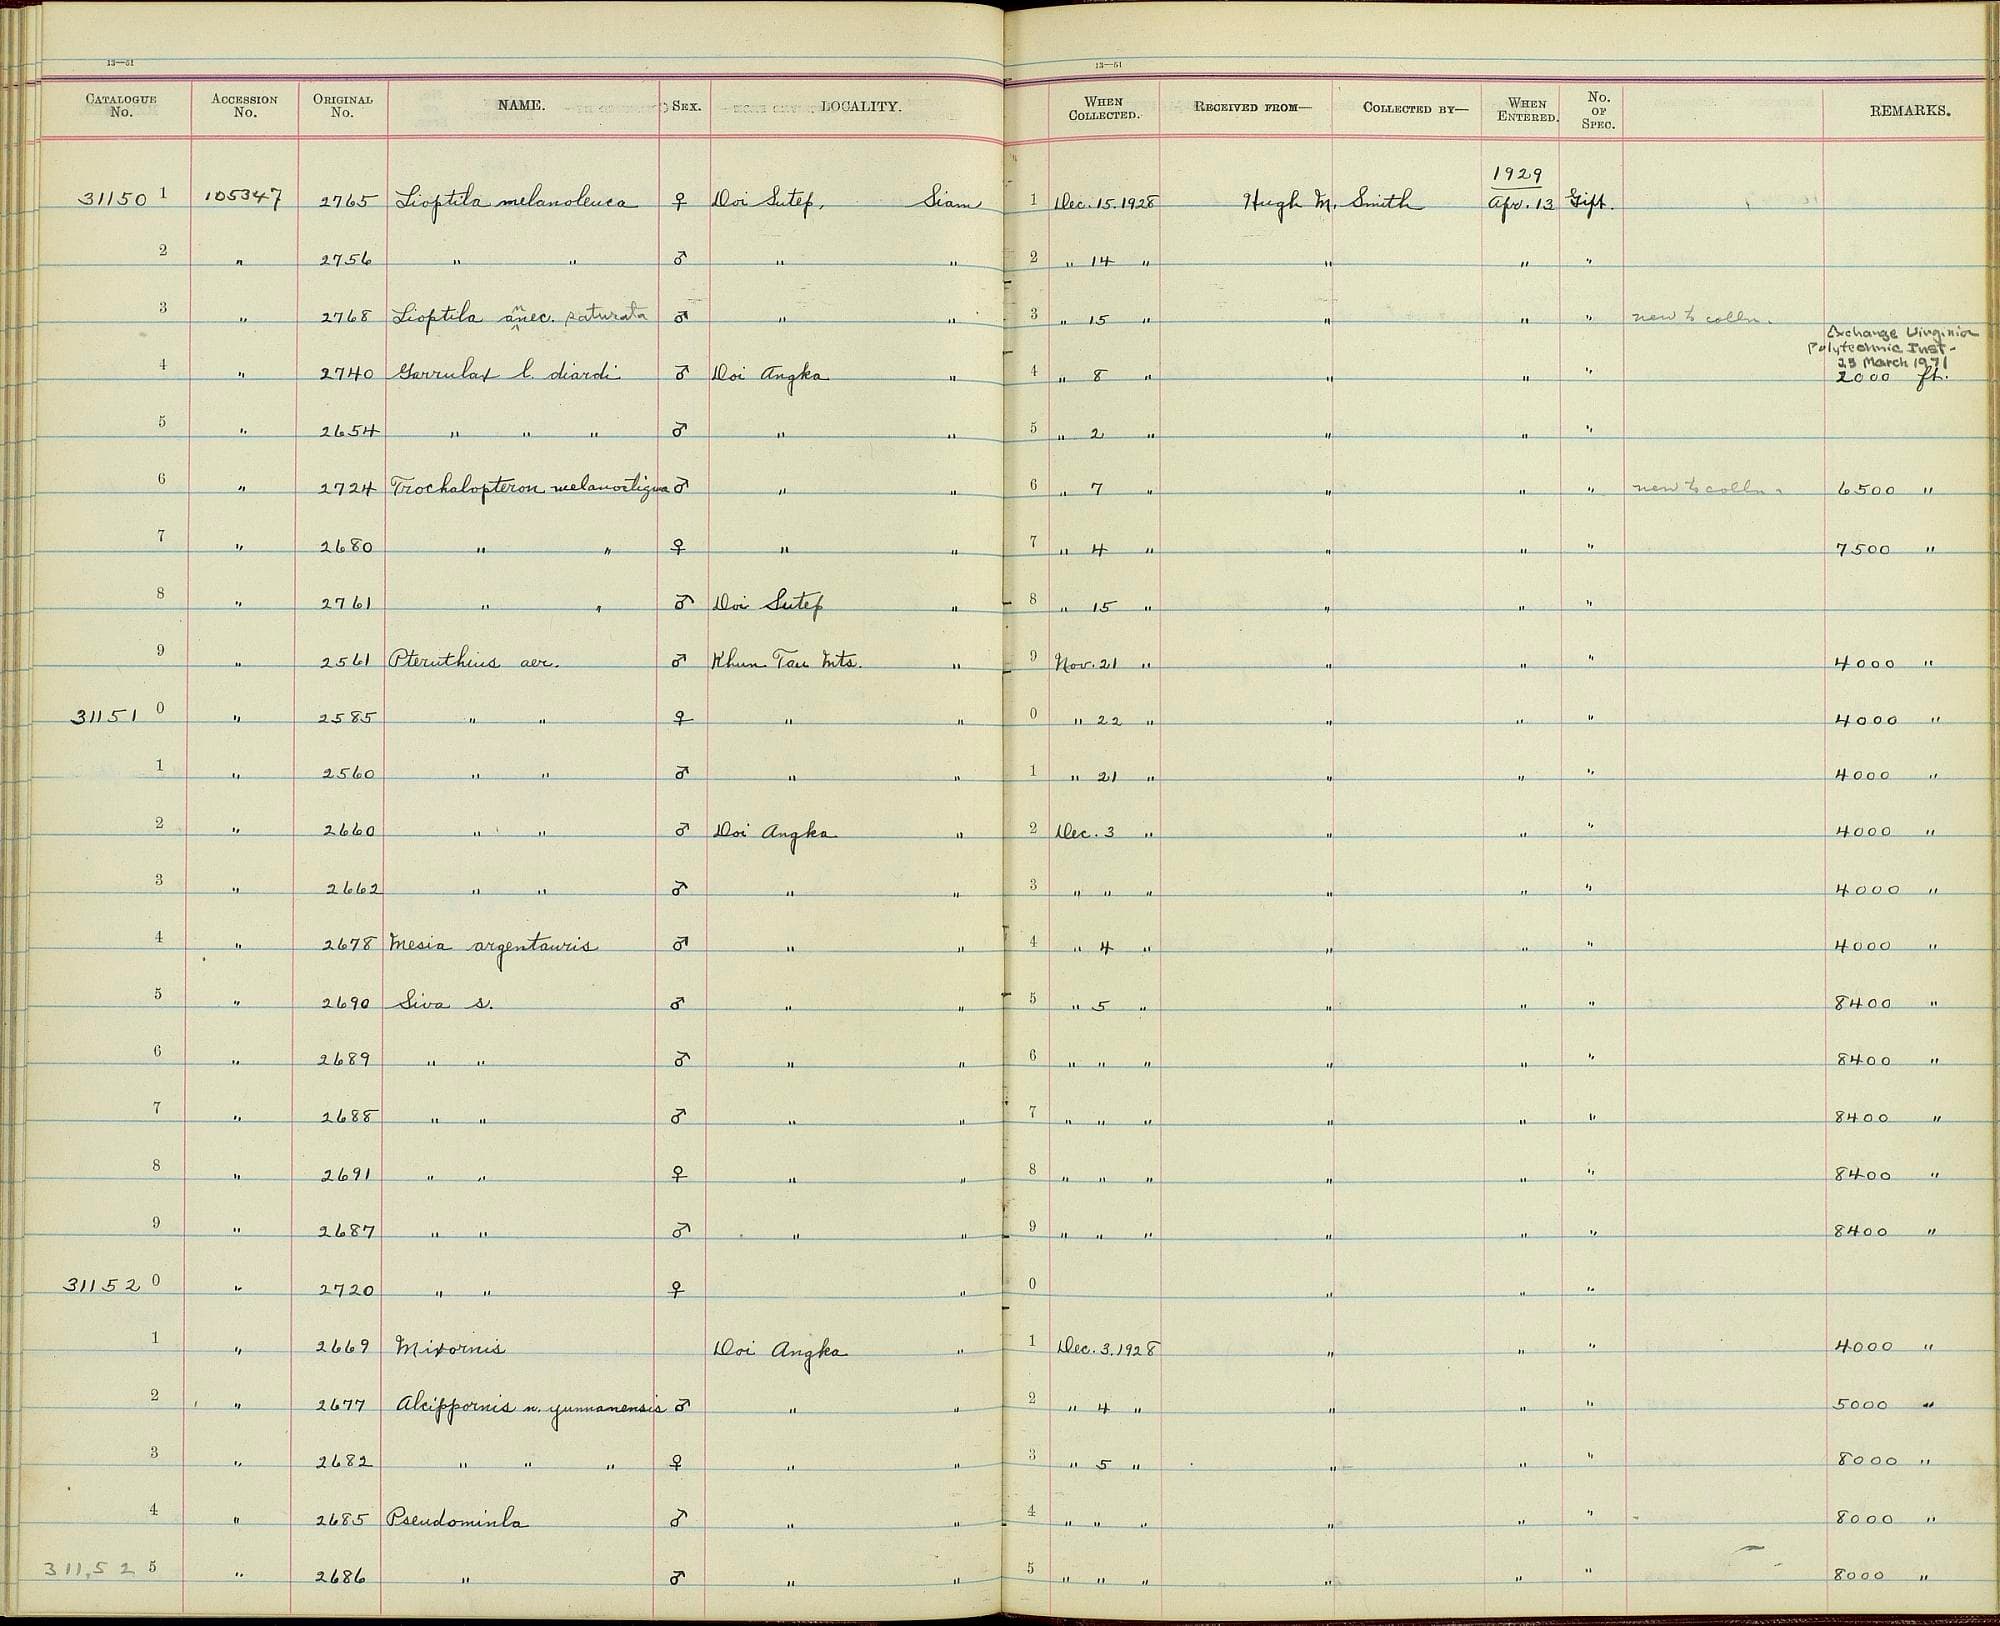 13—51 13—51
CATALOGUE No. ACCESSION No. ORIGINAL No. NAME. SEX. LOCALITY. WHEN COLLECTED. RECEIVED FROM— COLLECTED BY— WHEN ENTERED. No. OF SPEC. REMARKS.
1929
31150 1 105347 2765 Lioptila melanoleuca ♀ Doi Sutep, Siam 1 Dec. 15. 1928 Hugh M. Smith Apr. 13 Gift.
2 " 2756 " " ♂ " " 2 " 14 " " " "
3 " 2768 Lioptila annec. saturata ♂ " " 3 " 15 " " " " new to colln.
Exchange Virginia
Polytechnic Inst-
23 March 1971
4 " 2740 Garrulax l. diardi ♂ Doi Angka " 4 " 8 " " " " 2000 ft.
5 " 2654 " " " ♂ " " 5 " 2 " " " "
6 " 2724 Trochalopteron melanostigma ♂ " " 6 " 7 " " " " new to colln. 6500 "
7 " 2680 " " ♀ " " 7 " 4 " " " " 7500 "
8 " 2761 " " ♂ Doi Sutep " 8 " 15 " " " "
9 " 2561 Pteruthius aer. ♂ Khun Tan Mts. " 9 Nov. 21 " " " " 4000 "
31151 0 " 2585 " " ♀ " " 0 " 22 " " " " 4000 "
1 " 2560 " " ♂ " " 1 " 21 " " " " 4000 "
2 " 2660 " " ♂ Doi Angka " 2 Dec. 3 " " " " 4000 "
3 " 2662 " " ♂ " " 3 " " " " " " 4000 "
4 " 2678 Mesia argentauris ♂ " " 4 " 4 " " " " 4000 "
5 " 2690 Siva s. ♂ " " 5 " 5 " " " " 8400 "
6 " 2689 " " ♂ " " 6 " " " " " " 8400 "
7 " 2688 " " ♂ " " 7 " " " " " " 8400 "
8 " 2691 " " ♀ " " 8 " " " " " " 8400 "
9 " 2687 " " ♂ " " 9 " " " " " " 8400 "
31152 0 " 2720 " " ♀ " 0 " " "
1 " 2669 Mixornis Doi Angka " 1 Dec. 3. 1928 " " " 4000 "
2 " 2677 Alcippornis n. yunnanensis ♂ " " 2 " 4 " " " " 5000 "
3 " 2682 " " " ♀ " " 3 " 5 " " " " 8000 "
4 " 2685 Pseudominla ♂ " " 4 " " " " " " 8000 "
311,52 5 " 2686 " ♂ " " 5 " " " " " " 8000 "